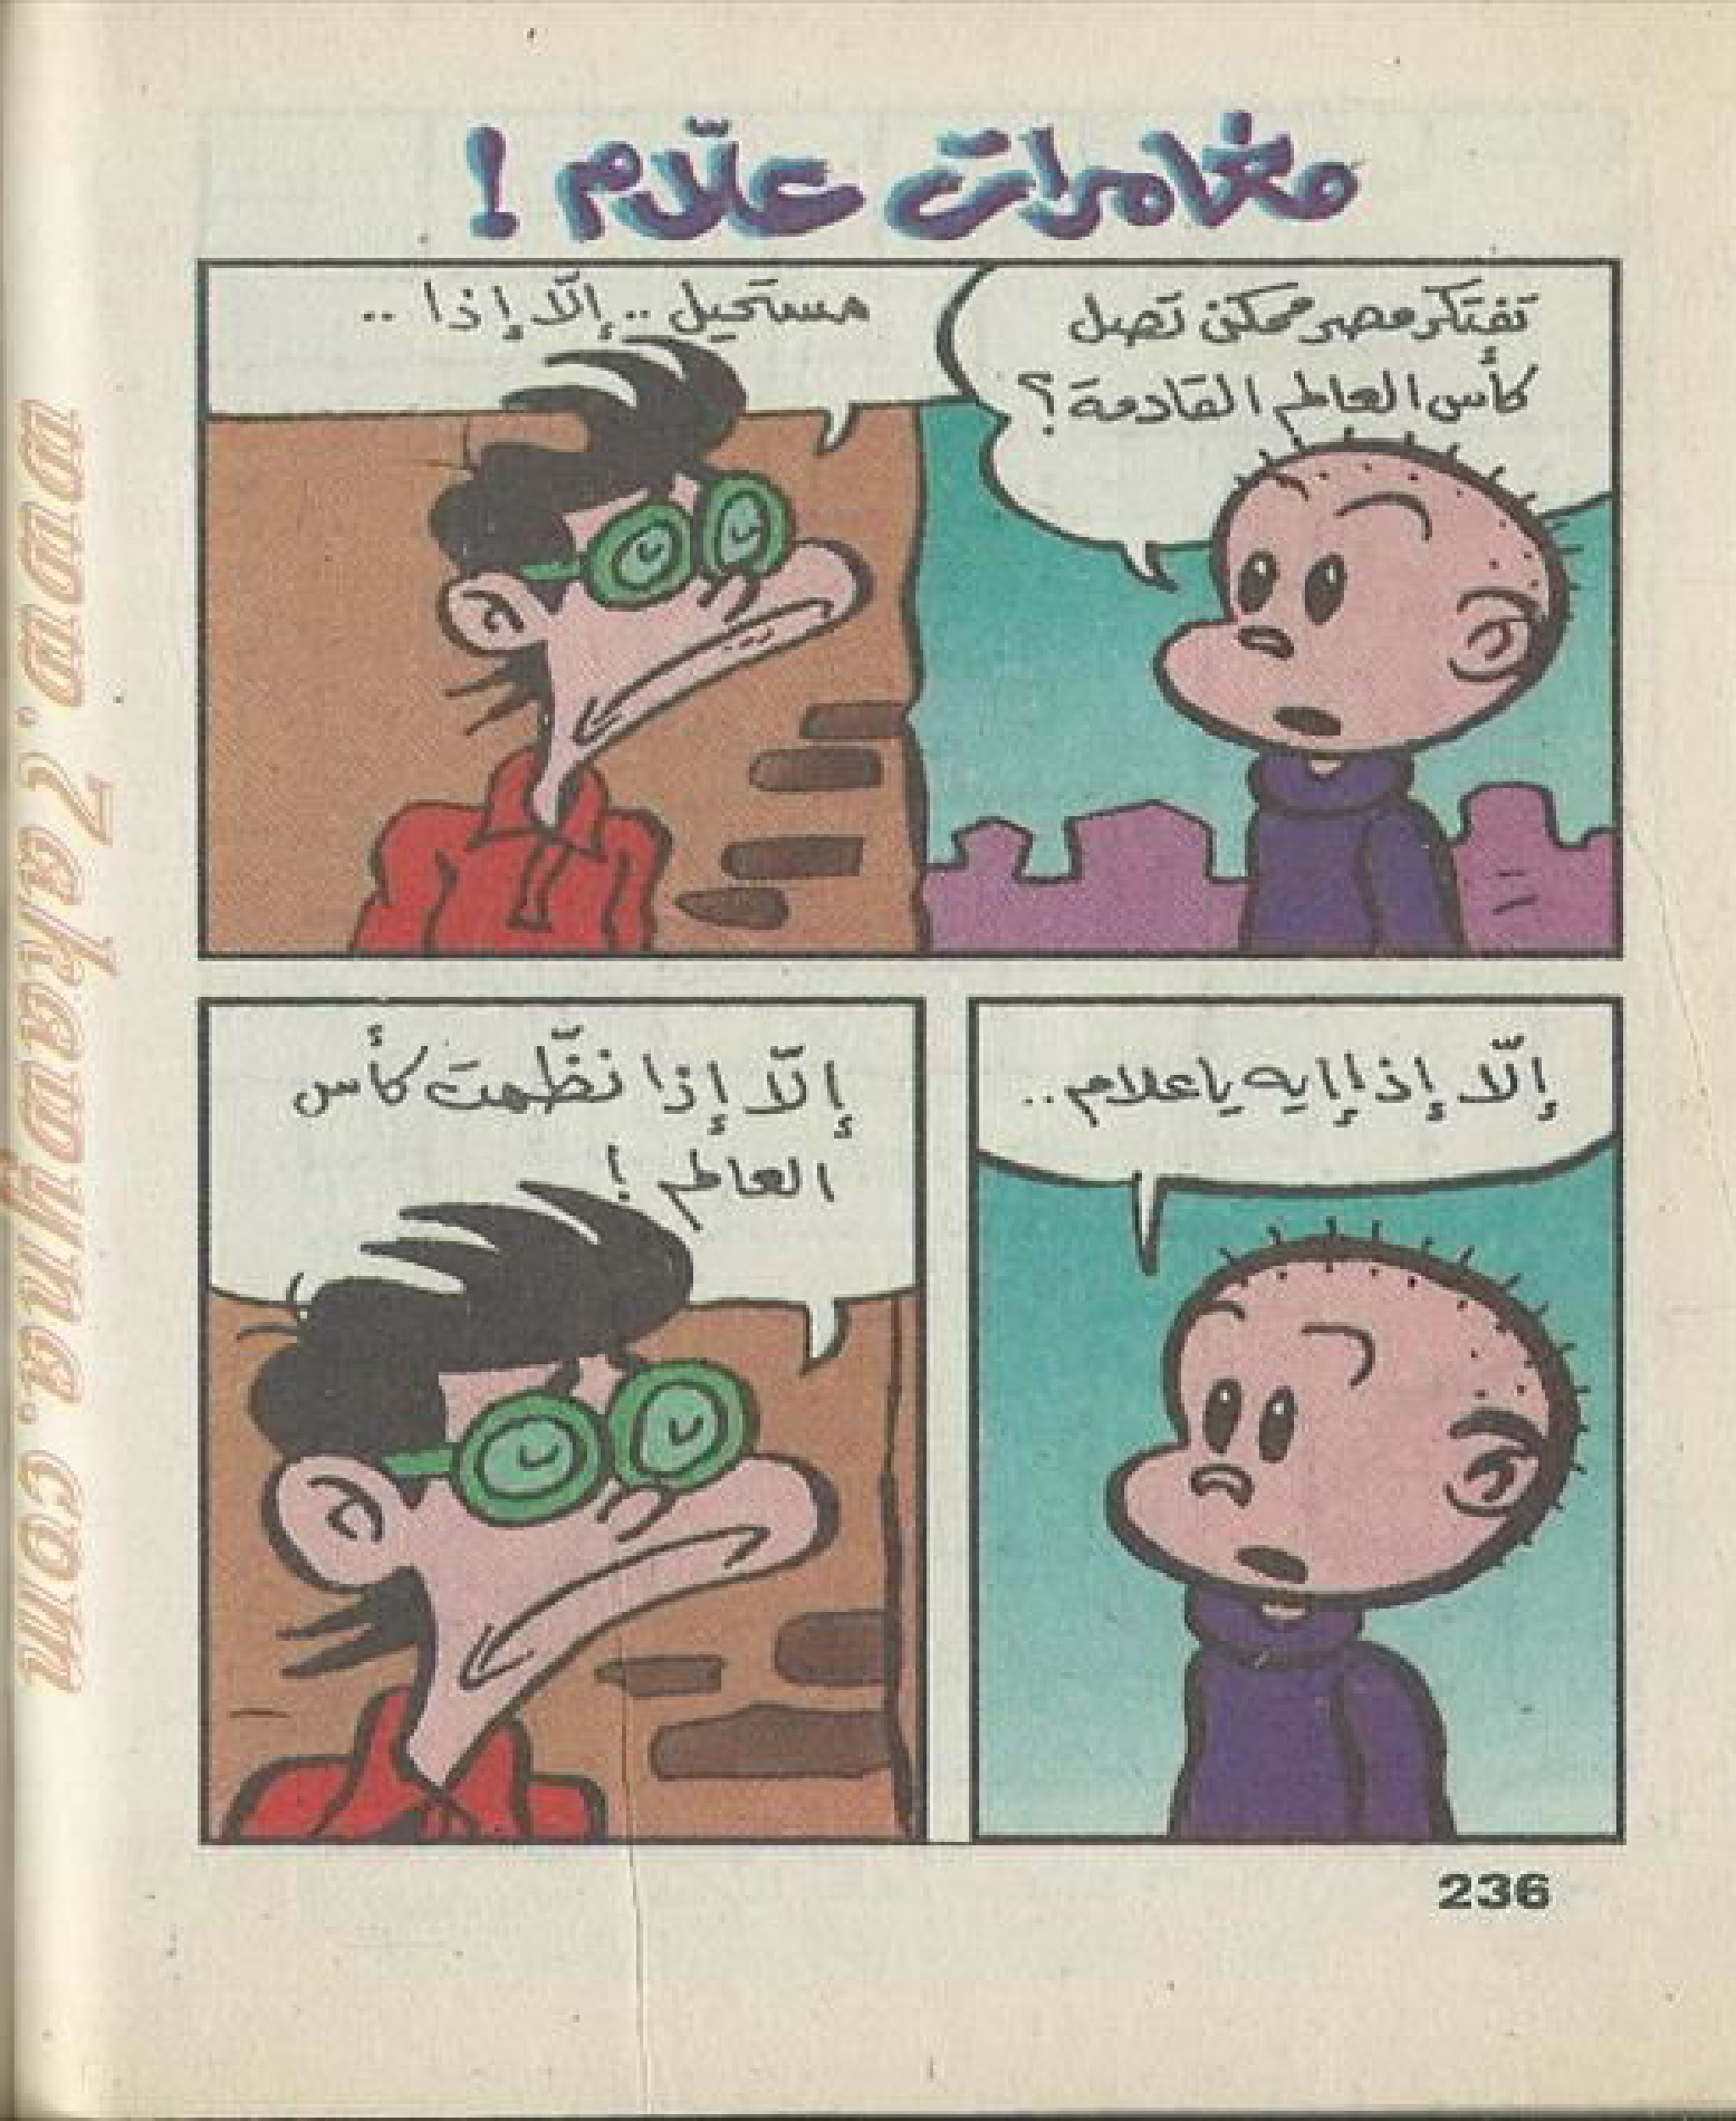 مغامرات علّام !
تفتكر مصر ممكن تصل
كأس العالم القادمة ؟
مستحيل .. إلّا إذا ..
إلّا إذا إيه يا علام ..
إلّا إذا نظّمت كأس
العالم !
236
www.7akaayhna.com